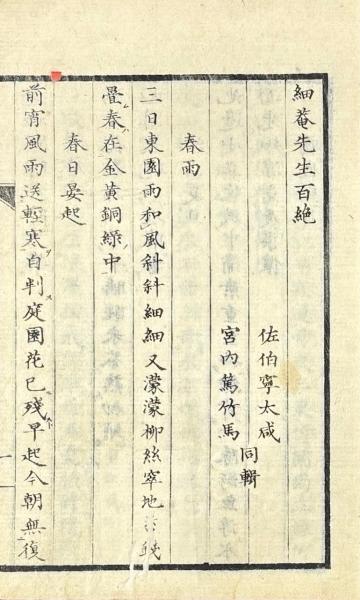 細菴先生百絶
佐伯寧太咸
宮內篤竹馬
同輯
春雨
三日東園雨和風斜斜細細又濛濛柳絲窣地
錢
疊春在金黃銅綠中
春日晏起
前宵風雨送輕寒自判庭園花已殘早起今朝無復